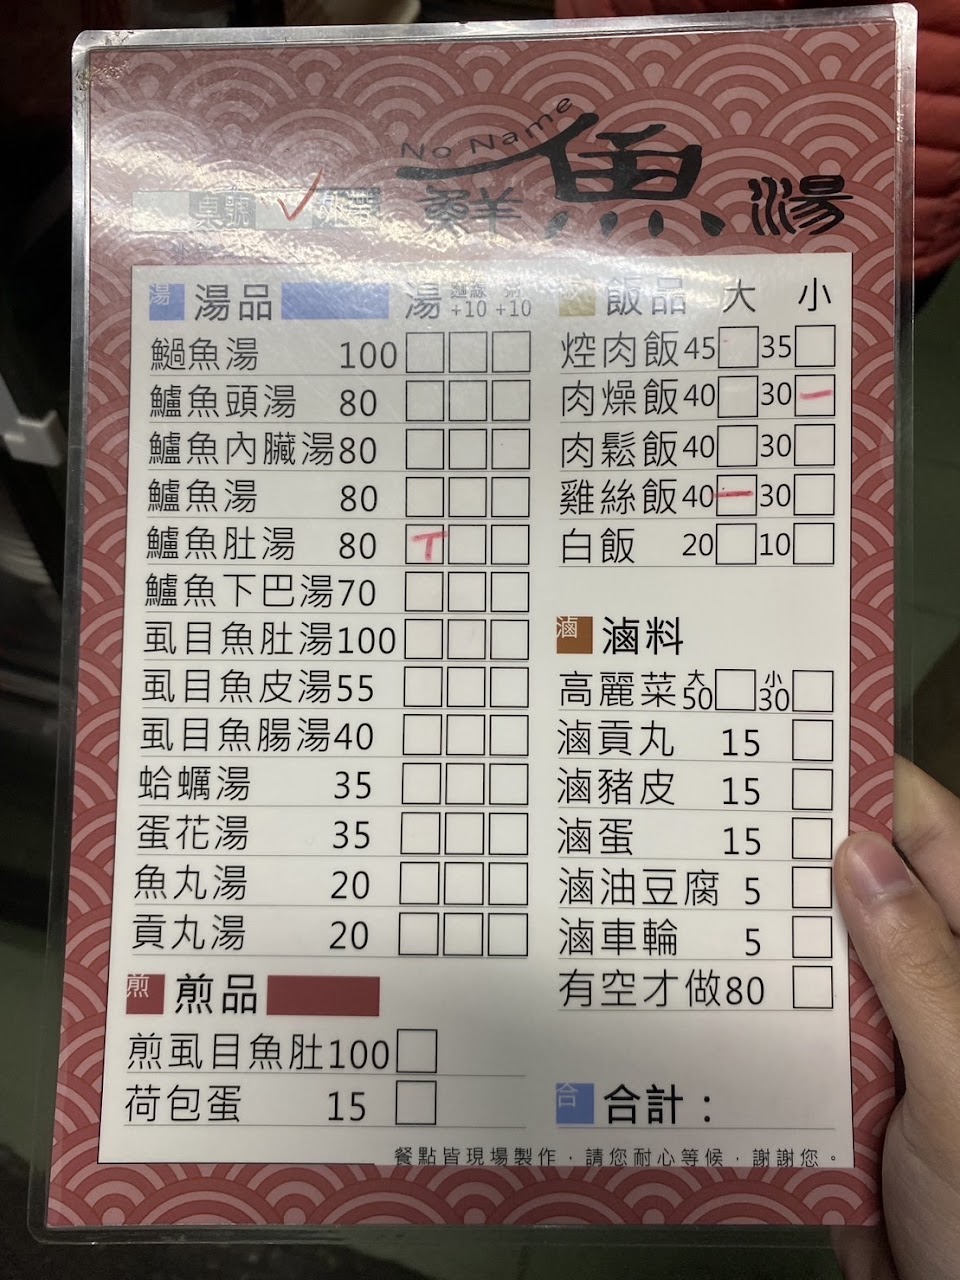 No Name
鮮魚湯
桌號
湯 湯品 湯 +10 粥+10
魚湯 100
鱸魚頭湯 80
鱸魚內臟湯80
鱸魚湯 80
鱸魚肚湯 80 T
鱸魚下巴湯70
虱目魚肚湯100
虱目魚皮湯55
虱目魚腸湯40
蛤蠣湯 35
蛋花湯 35
魚丸湯 20
貢丸湯 20
煎 煎品
煎虱目魚肚100
荷包蛋 15
飯品 大 小
焢肉飯45 35
肉燥飯40 30 一
肉鬆飯40 30
雞絲飯40 一 30
白飯 20 10
滷 滷料
高麗菜 大50 小30
滷貢丸 15
滷豬皮 15
滷蛋 15
滷油豆腐 5
滷車輪 5
有空才做80
合 合計：
餐點皆現場製作，請您耐心等候，謝謝您。